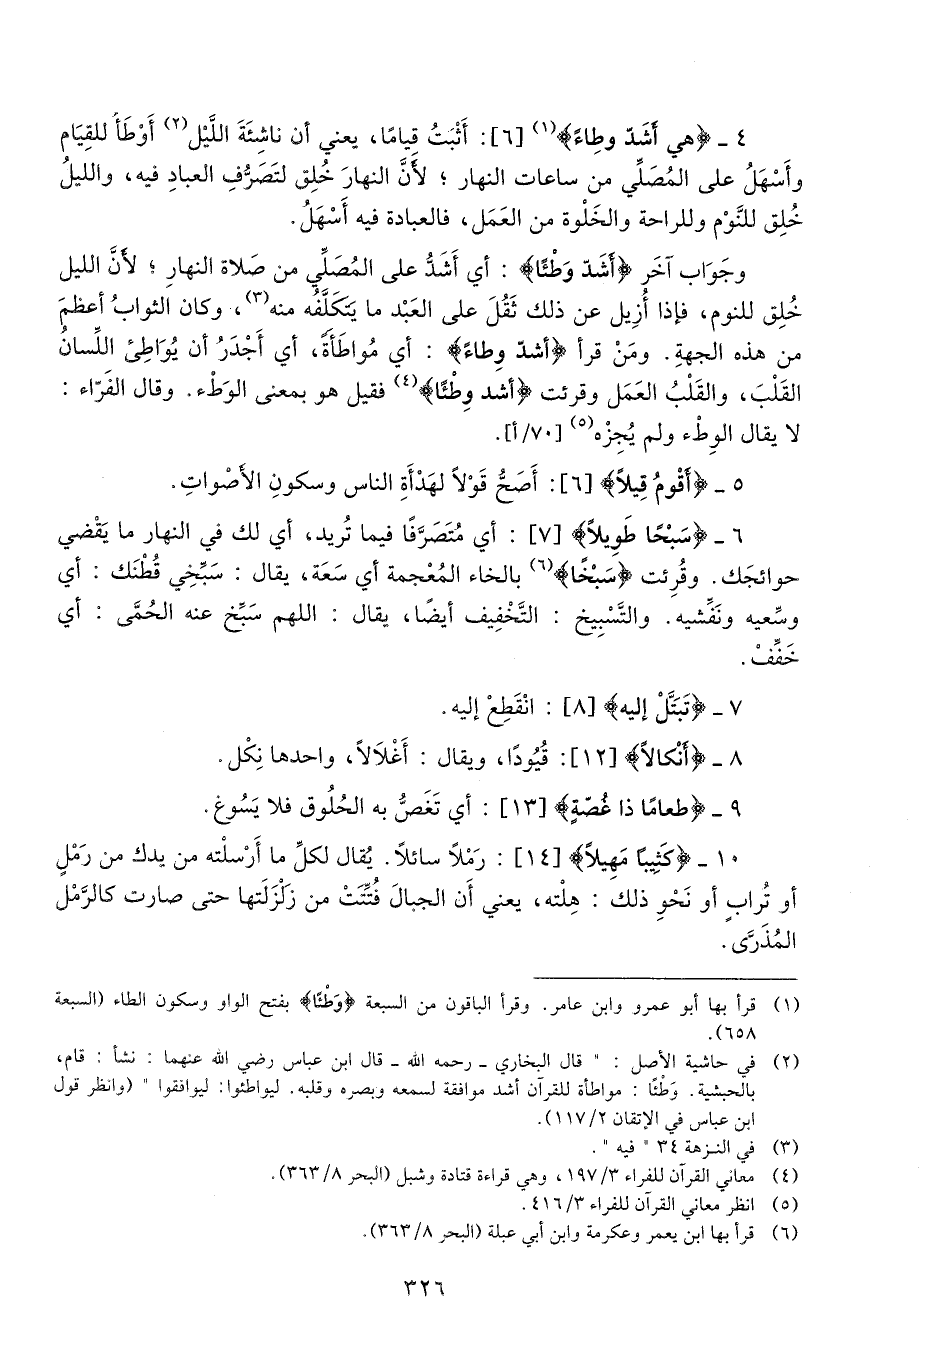 ٤ ـ ﴿هي أَشَدّ وِطاءً﴾(١) [٦]: أَثْبَتُ قِيامًا، يعني أن ناشِئَةَ اللَّيْل(٢) أَوْطَأُ للقِيَام
وأَسْهَلُ على المُصَلِّي من ساعات النهار ؛ لأَنَّ النهارَ خُلِق لتَصَرُّفِ العبادِ فيه، والليلُ
خُلِق للنَّوْم وللراحة والخَلْوة من العَمَل، فالعبادة فيه أَسْهَلُ.
وجَوَاب آخَر ﴿أَشَدّ وَطْئًا﴾ : أي أَشَدُّ على المُصَلِّي من صَلاة النهارِ ؛ لأَنَّ الليل
خُلِق للنوم، فإذا أُزِيل عن ذلك ثَقُلَ على العَبْد ما يَتَكَلَّفُه منه(٣)، وكان الثوابُ أعظمَ
من هذه الجهةِ. ومَنْ قرأ ﴿أشدّ وِطاءً﴾ : أي مُواطَأَةً، أي أَجْدَرُ أن يُوَاطِئَ اللِّسانُ
القَلْبَ، والقَلْبُ العَمَل وقرئت ﴿أشد وِطْئًا﴾(٤) فقيل هو بمعنى الوَطْء. وقال الفَرّاء :
لا يقال الوِطْء ولم يُجِزْه(٥) [٧٠/أ].
٥ ـ ﴿أَقْومُ قِيلاً﴾ [٦]: أَصَحُّ قَوْلاً لهَدْأَةِ الناس وسكونِ الأَصْواتِ.
٦ ـ ﴿سَبْحًا طَوِيلاً﴾ [٧] : أي مُتَصَرَّفًا فيما تُريد، أي لك في النهار ما يَقْضي
حوائجَك. وقُرِئت ﴿سَبْخًا﴾(٦) بالخاء المُعْجمة أي سَعَة، يقال : سَبِّخِي قُطْنَك : أي
وسِّعيه ونَفِّشيه. والتَّسْبِيخ : التَّخْفِيف أيضًا، يقال : اللهم سَبِّخ عنه الحُمَّى : أي
خَفِّفْ.
٧ ـ ﴿تَبَتَّلْ إليه﴾ [٨] : انْقَطِعْ إليه.
٨ ـ ﴿أَنْكالاً﴾ [١٢]: قُيُودًا، ويقال : أَغْلَالاً، واحدها نِكْل.
٩ ـ ﴿طعامًا ذا غُصّةٍ﴾ [١٣] : أي تَغَصُّ به الحُلُوق فلا يَسُوغ.
١٠ ـ ﴿كَثِيبًا مَهِيلاً﴾ [١٤] : رَمْلاً سائلاً. يُقال لكلِّ ما أَرْسلْته من يدك من رَمْلٍ
أو تُرابٍ أو نَحْوِ ذلك : هِلْته، يعني أَن الجبالَ فُتِّتَتْ من زَلْزَلَتها حتى صارت كالرَّمْل
المُذَرَّى.
(١) قرأ بها أبو عمرو وابن عامر. وقرأ الباقون من السبعة ﴿وَطْئًا﴾ بفتح الواو وسكون الطاء (السبعة
٦٥٨).
(٢) في حاشية الأصل : " قال البخاري ـ رحمه الله ـ قال ابن عباس رضي الله عنهما : نشأ : قام،
بالحبشية. وَطْئًا : مواطأة للقرآن أشد موافقة لسمعه وبصره وقلبه. ليواطئوا: ليوافقوا " (وانظر قول
ابن عباس في الإتقان ١١٧/٢).
(٣) في النـزهة ٣٤ " فيه ".
(٤) معاني القرآن للفراء ١٩٧/٣، وهي قراءة قتادة وشبل (البحر ٣٦٣/٨).
(٥) انظر معاني القرآن للفراء ٤١٦/٣.
(٦) قرأ بها ابن يعمر وعكرمة وابن أبي عبلة (البحر ٣٦٣/٨).
٣٢٦